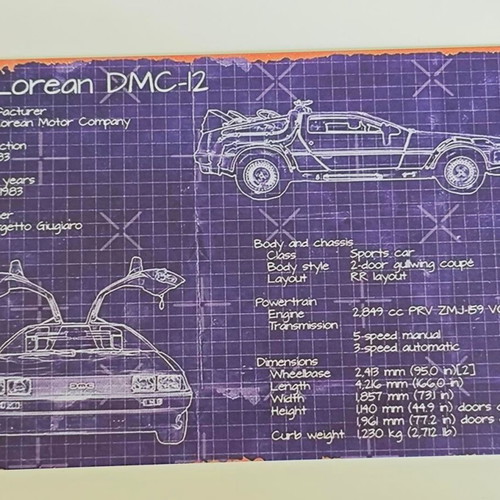 Lorean DMC-12
facturer
orean Motor Company
ction
83
years
1983
er
rgetto Giugiaro
Body and chassis
Class Sports car
Body style 2-door gullwing coupé
Layout RR layout
Powertrain
Engine 2,849 cc PRV ZMJ-159 V
Transmission
5-speed manual
3-speed automatic
Dimensions
Wheelbase 2,413 mm (95.0 in)[2]
Length 4,216 mm (166.0 in)
Width 1,857 mm (73.1 in)
Height 1,140 mm (44.9 in) doors
1,961 mm (77.2 in) doors
Curb weight 1,230 kg (2,712 lb)
DMC